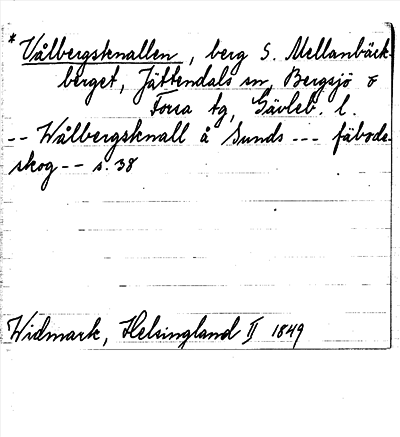 * Vålbergsknallen, berg S. Mellanbäck-
berget, Jättendals sn, Bergsjö &
Forsa tg, Gävleb. l.
-- Wålbergsknall å Sunds --- fäbods-
skog -- s. 38
Widmark, Helsingland II 1849